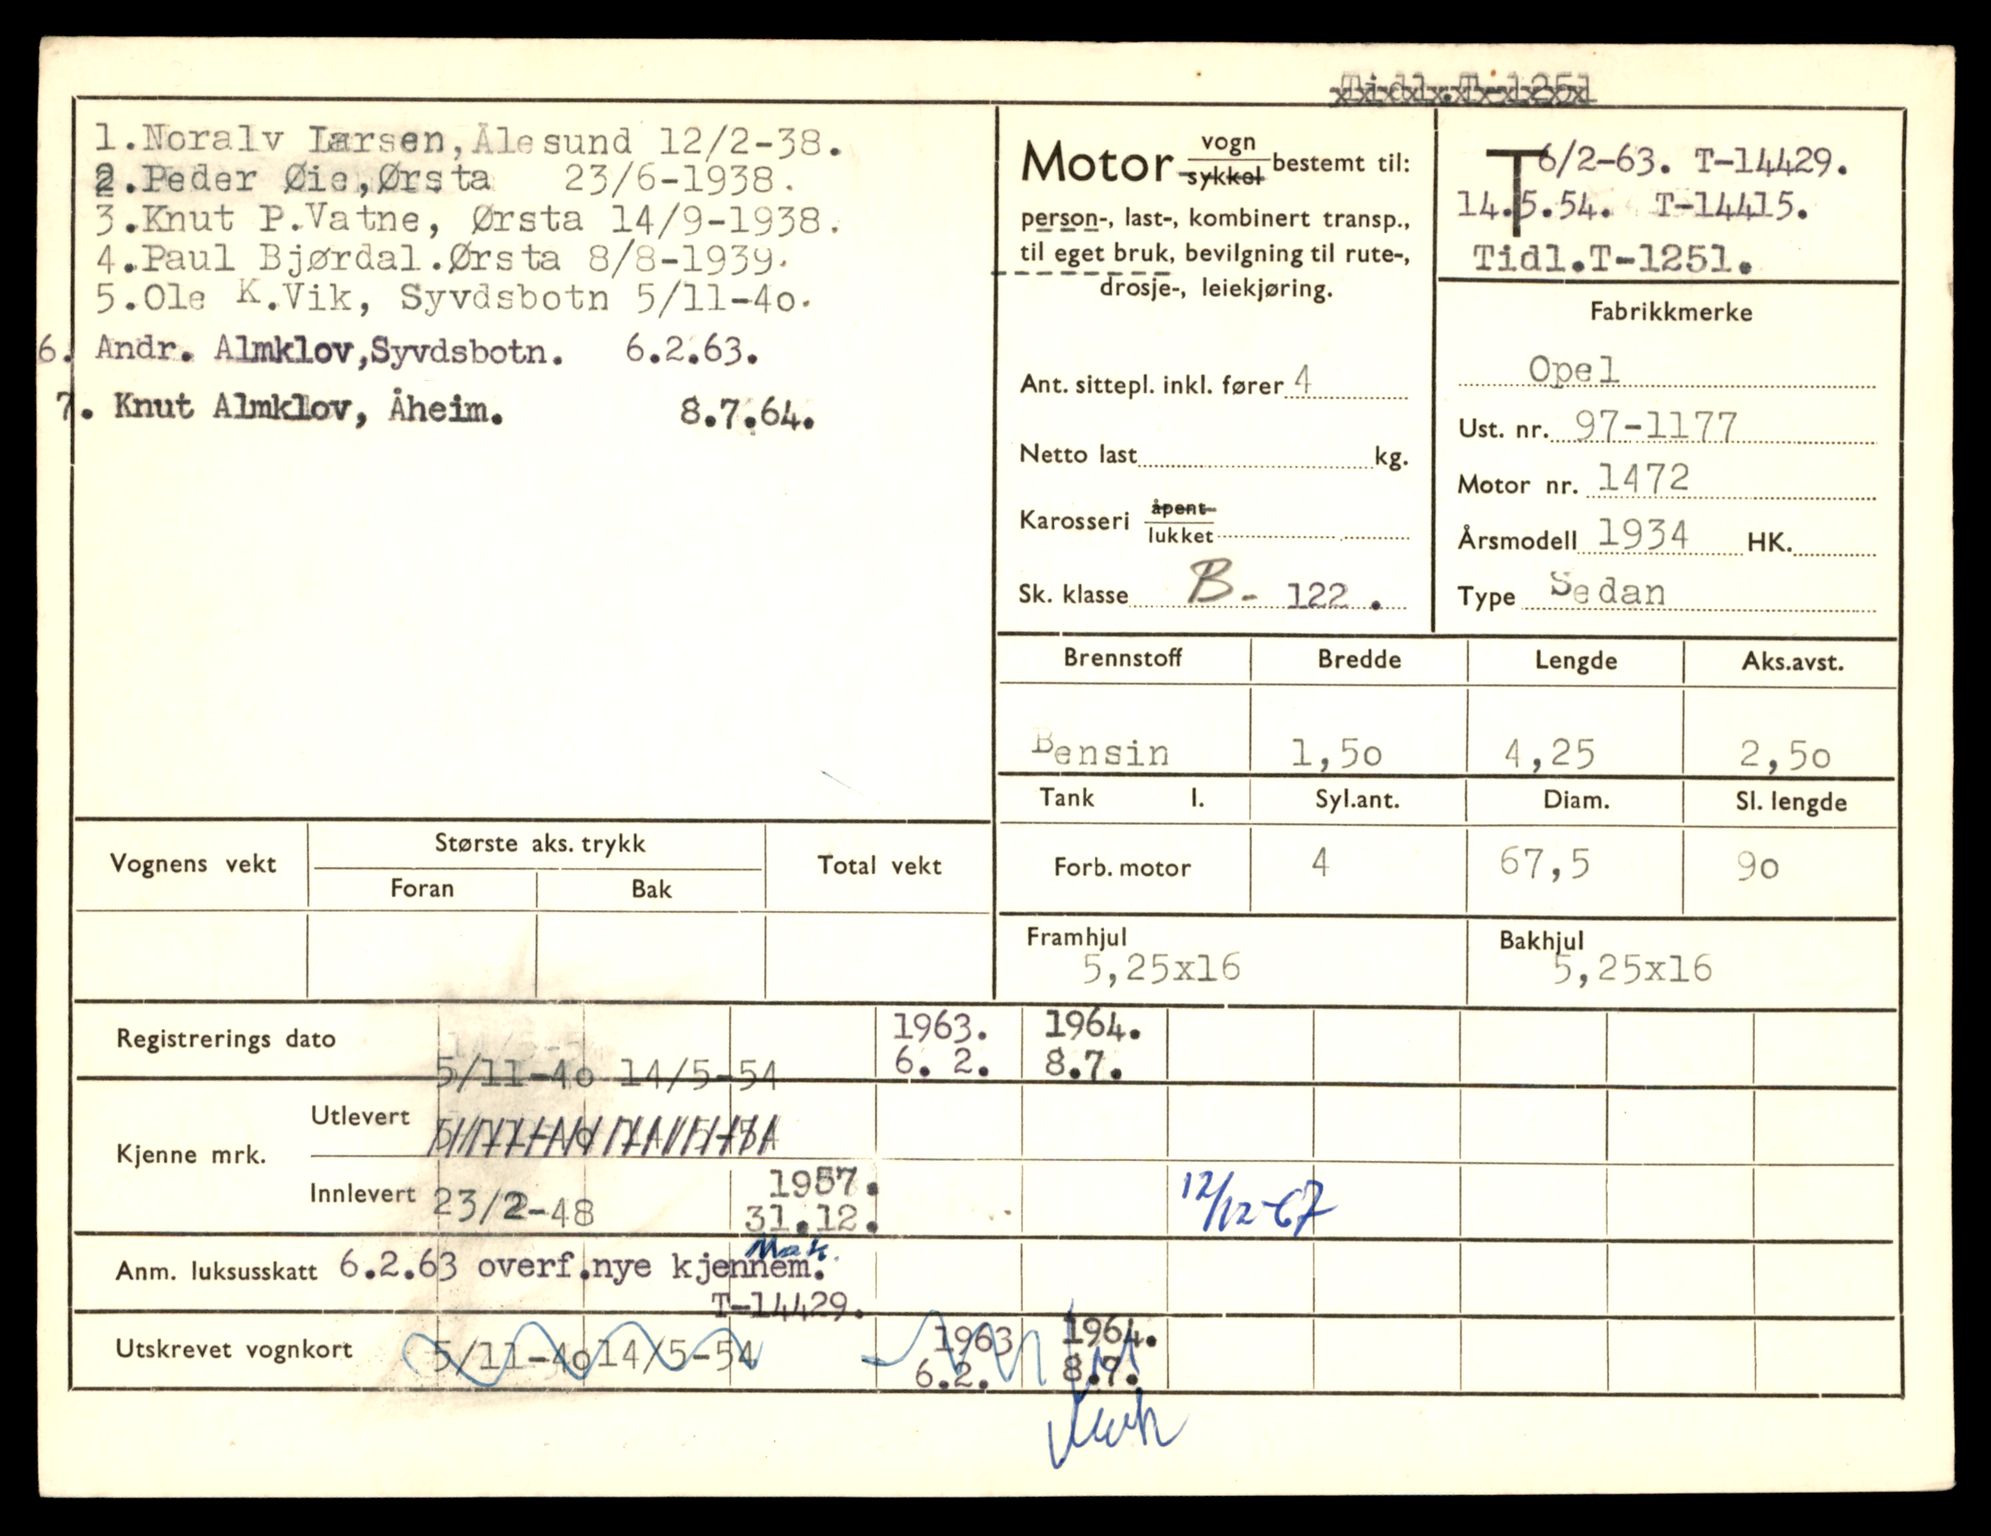 Tidl.T-1251
1.Noralv Larsen,Ålesund 12/2-38.
2.Peder Øie,Ørsta 23/6-1938.
3.Knut P.Vatne, Ørsta 14/9-1938.
4.Paul Bjørdal.Ørsta 8/8-1939.
5.Ole K.Vik, Syvdsbotn 5/11-4o.
6. Andr. Almklov,Syvdsbotn. 6.2.63.
7. Knut Almklov, Åheim. 8.7.64.
Motor vogn
sykkel bestemt til:
person-, last-, kombinert transp.,
til eget bruk, bevilgning til rute-,
drosje-, leiekjøring.
Ant. sittepl. inkl. fører 4
Netto last kg.
Karosseri åpent
lukket
Sk. klasse B- 122.
T 6/2-63. T-14429.
14.5.54. T-14415.
Tidl.T-1251.
Fabrikkmerke
Opel
Ust. nr. 97-1177
Motor nr. 1472
Årsmodell 1934 HK.
Type Sedan
Brennstoff Bredde Lengde Aks.avst.
Bensin 1,5o 4,25 2,5o
Tank l. Syl.ant. Diam. Sl. lengde
Forb. motor 4 67,5 9o
Framhjul Bakhjul
5,25x16 5,25x16
Vognens vekt Største aks. trykk Total vekt
Foran Bak
Registrerings dato 1963. 1964.
5/11-4o 14/5-54 6. 2. 8.7.
Kjenne mrk.
Utlevert 5/11-4o 14/5-54
Innlevert 23/2-48 1957. 12/12-67
31.12.
Anm. luksusskatt 6.2.63 overf.nye kjennem.
T-14429.
Utskrevet vognkort 5/11-4o 14/5-54 1963 1964.
6.2. 8.7.